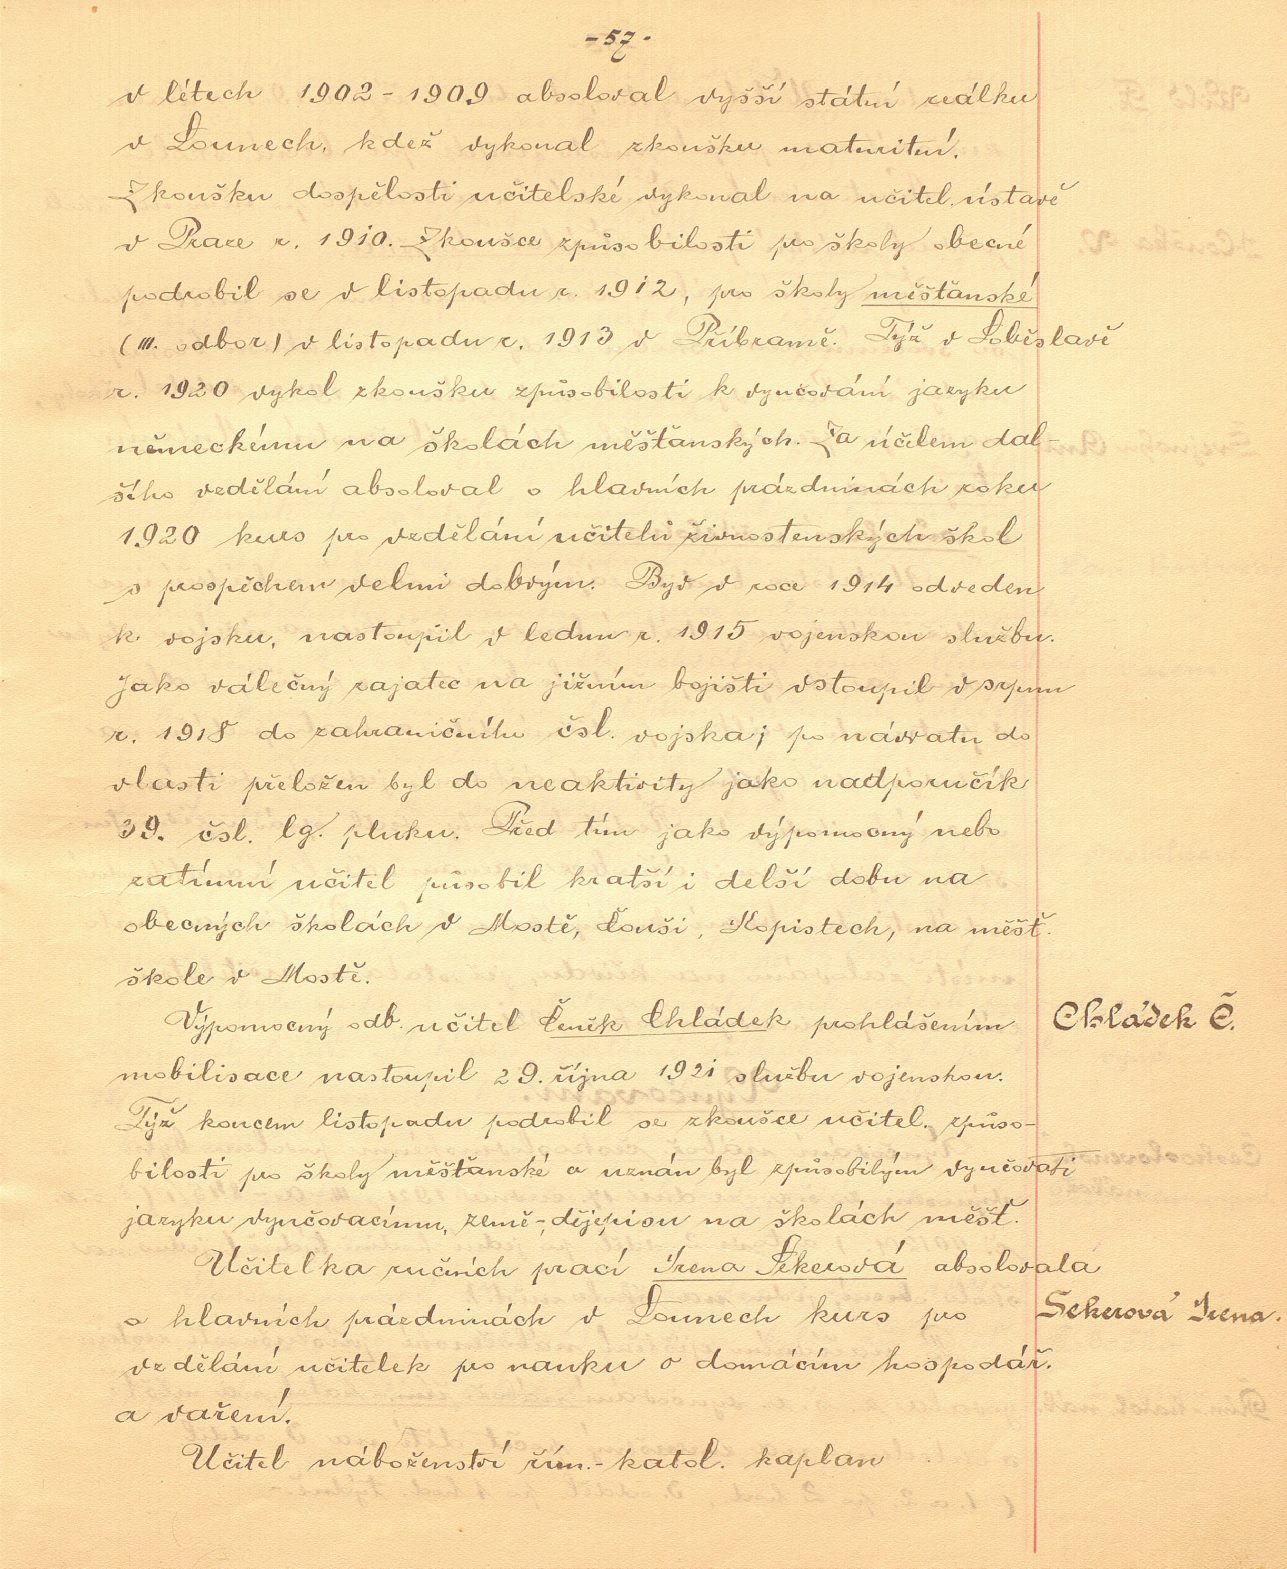 - 57 -
v létech 1902 - 1909 absoloval vyšší státní reálku
v Lounech, kdež vykonal zkoušku maturitní.
Zkoušku dospělosti učitelské vykonal na učitel. ústavě
v Praze r. 1910. Zkoušce způsobilosti pro školy obecné
podrobil se v listopadu r. 1912, pro školy měšťanské
(III. odbor) v listopadu r. 1913 v Příbramě. Týž v Soběslavě
r. 1920 vykol zkoušku způsobilosti k vyučování jazyku
německému na školách měšťanských. Za účelem dal-
šího vzdělání absoloval o hlavních prázdninách roku
1920 kurs pro vzdělání učitelů živnostenských škol
s prospěchem velmi dobrým. Byv v roce 1914 odveden
k vojsku, nastoupil v lednu r. 1915 vojenskou službu.
Jako válečný zajatec na jižním bojišti vstoupil v srpnu
r. 1918 do zahraničního čsl. vojska; po návratu do
vlasti přeložen byl do neaktivity jako nadporučík
39. čsl. lg. pluku. Před tím jako výpomocný nebo
zatímní učitel působil kratší i delší dobu na
obecných školách v Mostě, Čouši, Kopistech, na měšť.
škole v Mostě.
Výpomocný odb. učitel Čeněk Chládek prohlášením
Chládek Č.
mobilisace nastoupil 29. října 1921 službu vojenskou.
Týž koncem listopadu podrobil se zkoušce učitel. způso-
bilosti pro školy měšťanské a uznán byl způsobilým vyučovati
jazyku vyučovacímu, země-, dějepisu na školách měšť.
Učitelka ručních prací Irena Sekerová absolovala
o hlavních prázdninách v Lounech kurs pro
Sekerová Irena.
vzdělání učitelek pro nauku o domácím hospodář.
a vaření.
Učitel náboženství řím.-katol. kaplan